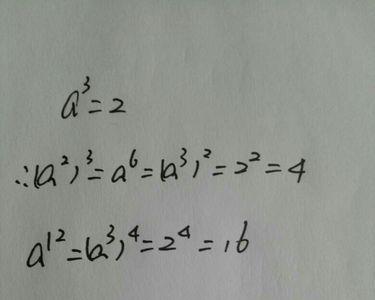 a³=2
∴(a²)³=a⁶=(a³)²=2²=4
a¹²=(a³)⁴=2⁴=16